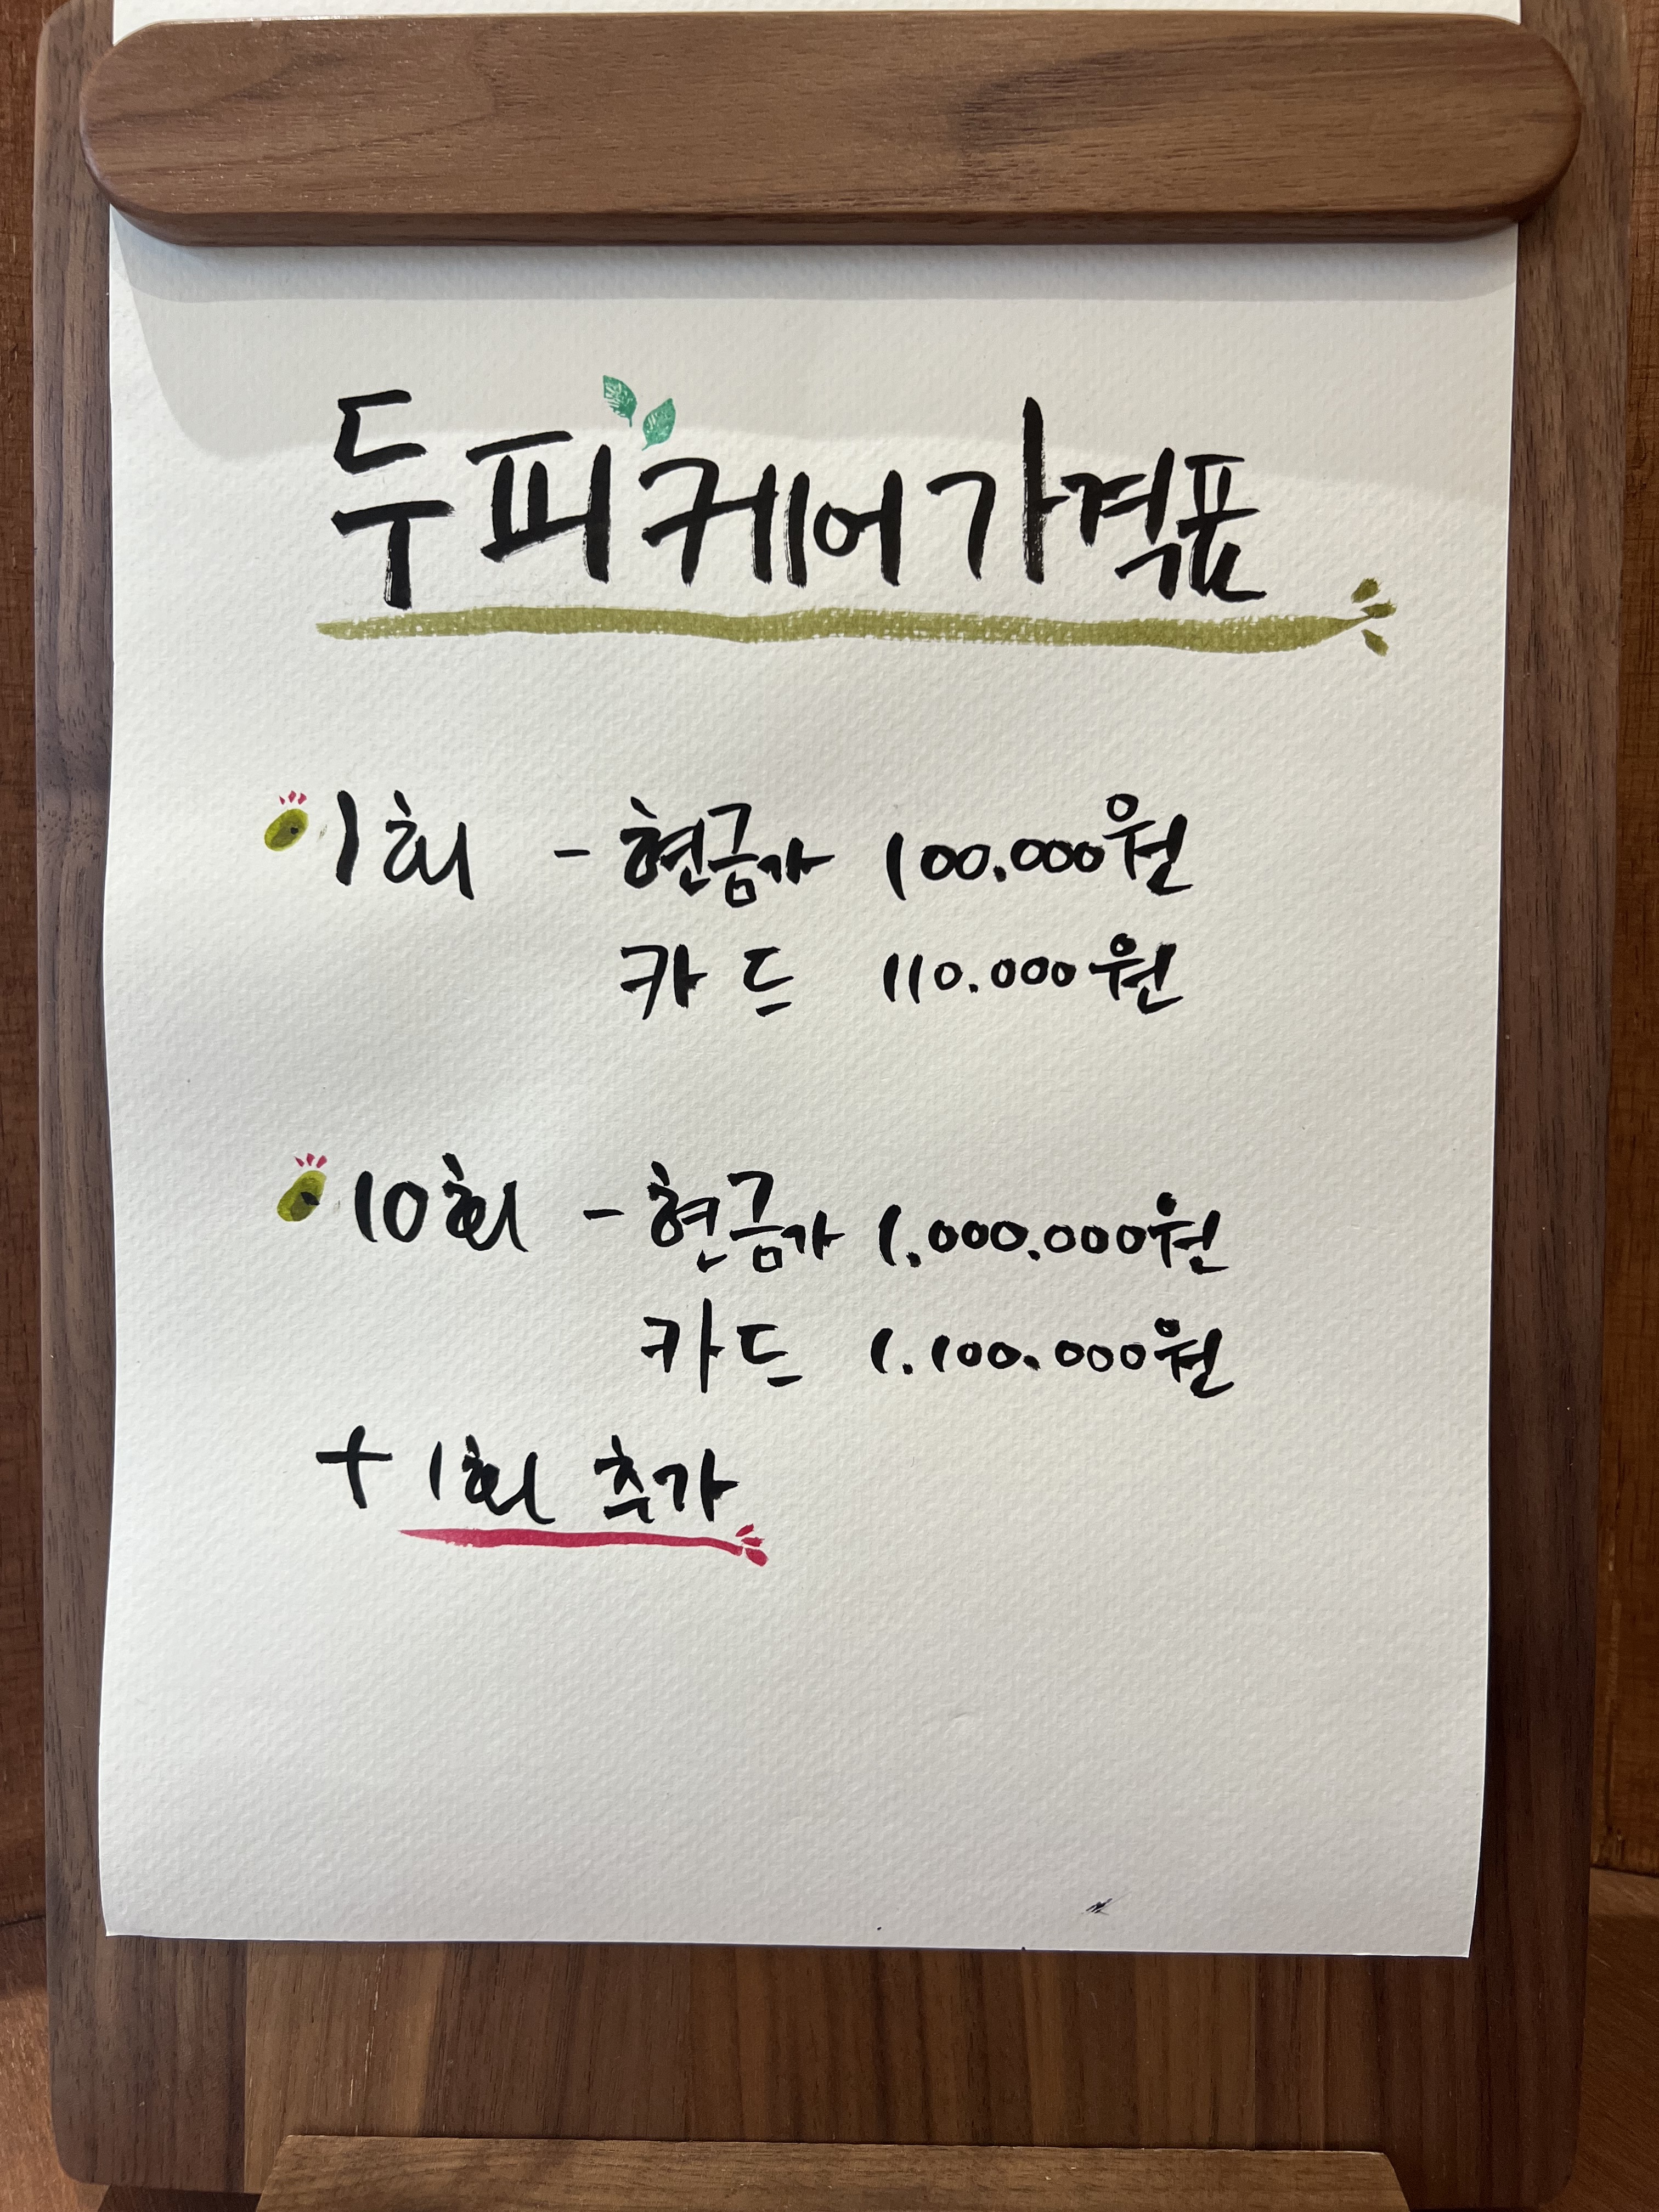 두피케어 가격표
1회 - 현금가 100.000원
카드 110.000원
10회 - 현금가 1.000.000원
카드 1.100.000원
+ 1회 추가